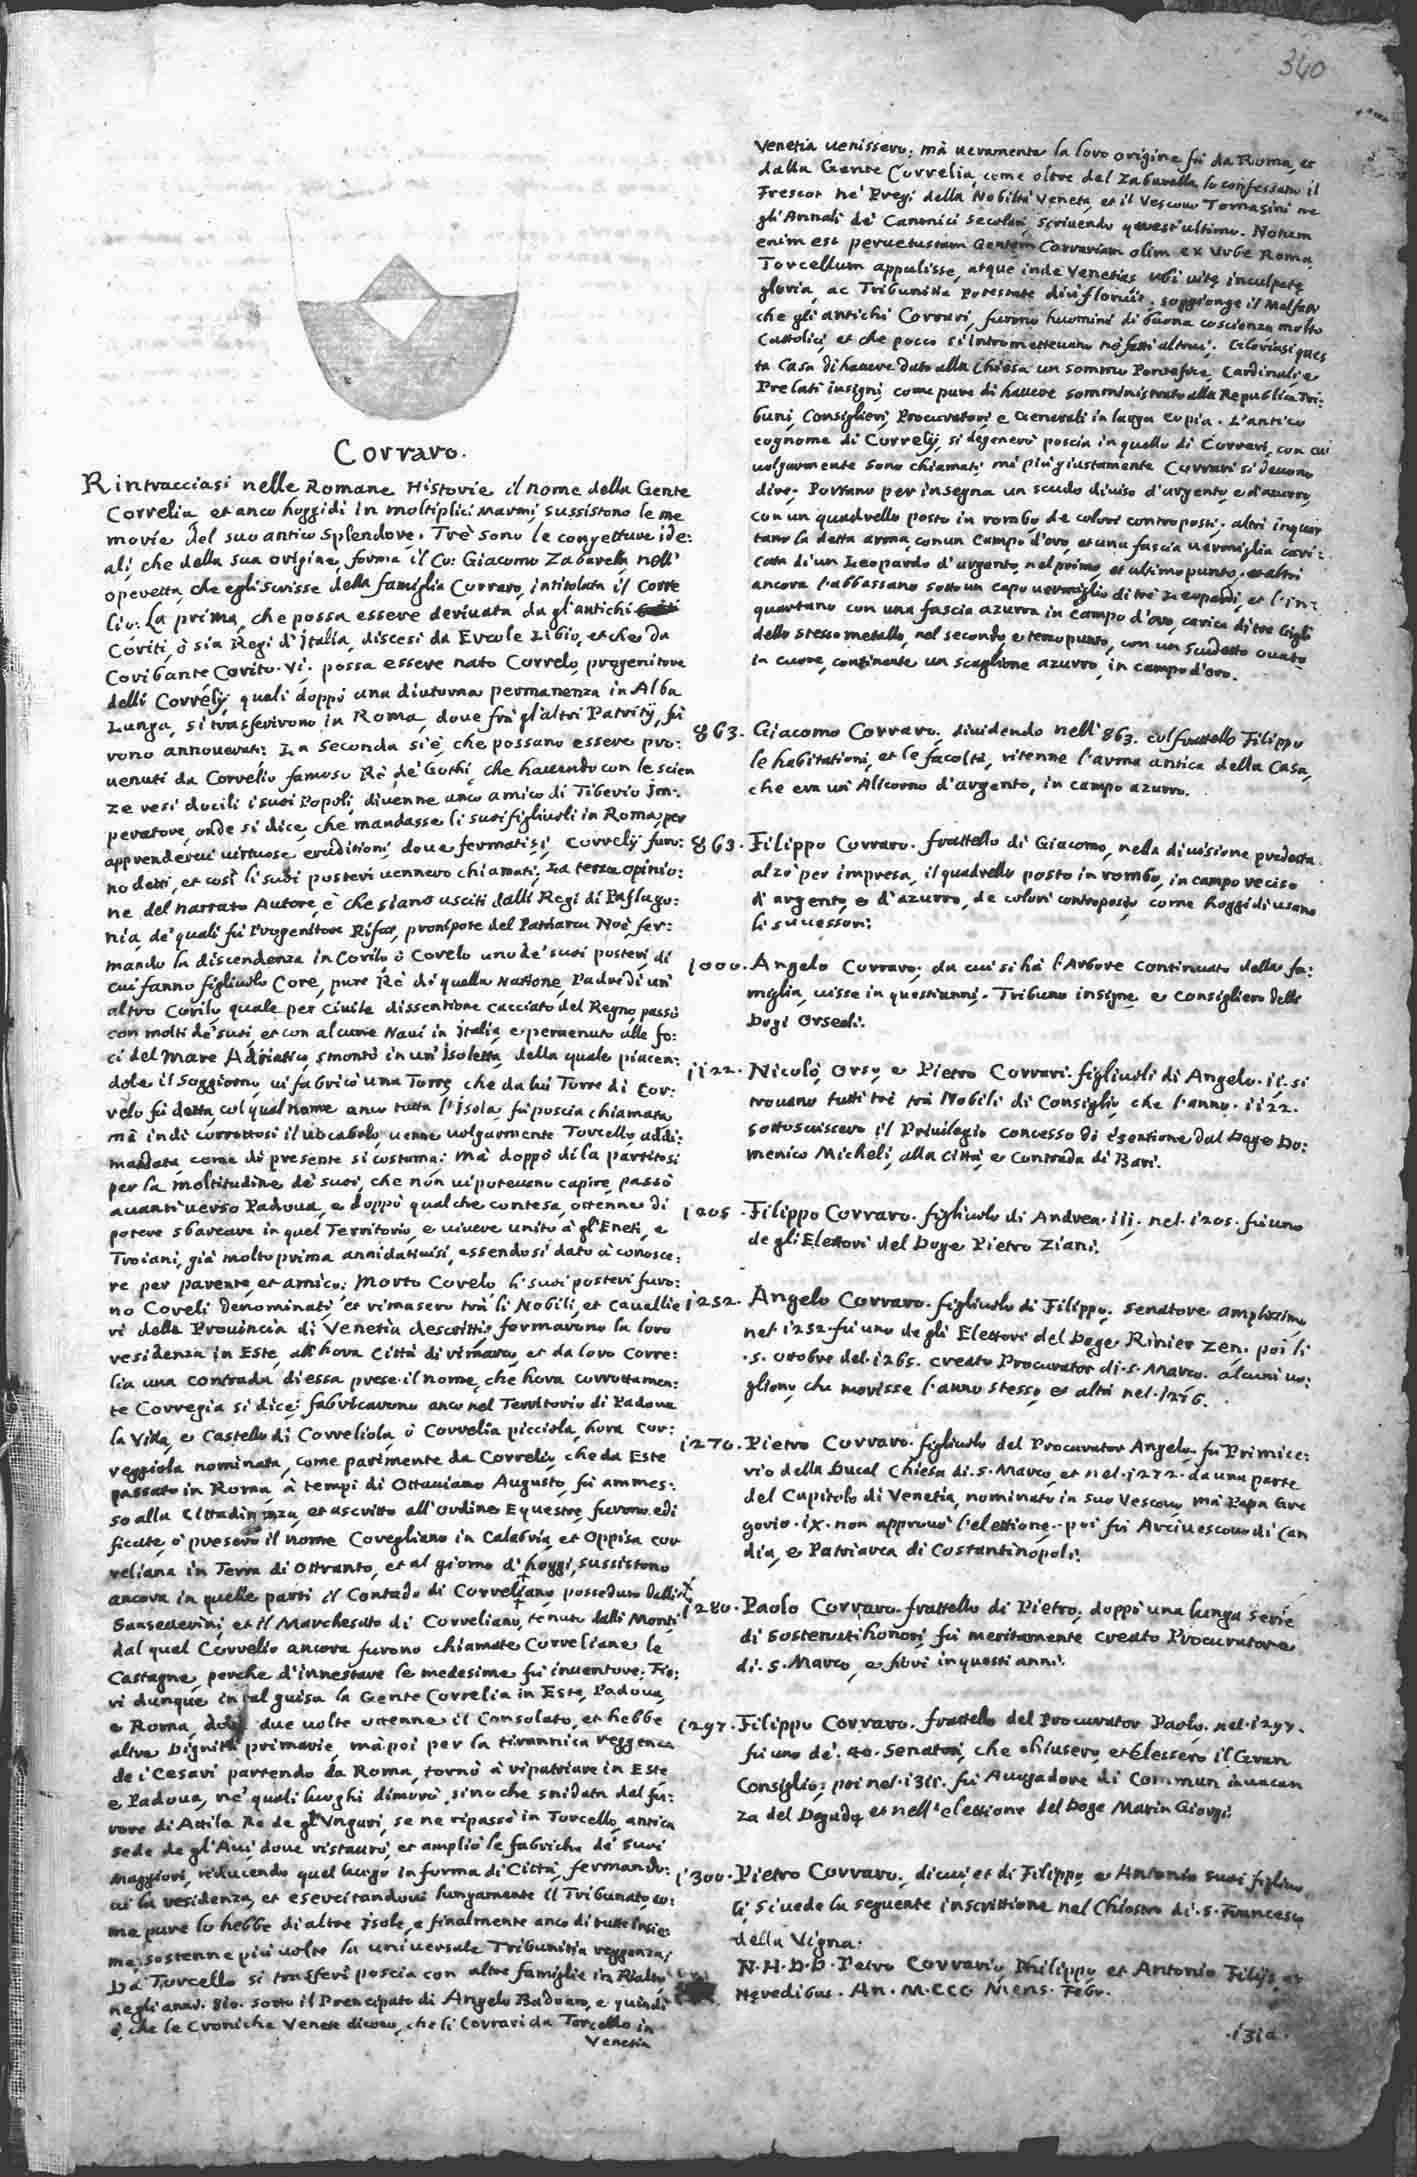 340
Corraro.
Rintracciasi nelle Romane Historie il nome della Gente
Correlia et anco hoggidi in moltiplici Marmi sussistono le me
morie del suo antico Splendore. Trè sono le congetture ide:
ali, che della sua origine, forma il Co: Giacomo Zabarella nell'
operetta, che egli scrisse della famiglia Corraro, intitolata il Corre
lio: La prima, che possa essere derivata da gl'antichi
Coriti, ò sia Regi d'Italia, discesi da Ercole Libio, et che da
Coribante Corito. VI. possa essere nato Correlo, progenitore
delli Correlij, quali doppò una diuturna permanenza in Alba
Lunga, si trasferirono in Roma, doue frà gl'altri Patritij, fu
rono annouerati: La Seconda si è, che possano essere pro:
uenuti da Corelio famoso Rè de' Gothi, che hauendo con le scien
ze resi docili i suoi Popoli, diuenne anco amico di Tiberio Im:
peratore, onde si dice, che mandasse li suoi figliuoli in Roma, per
apprenderui uirtuose eruditioni, doue fermatisi, Correlij furo:
no detti, et così li suoi posteri uennero chiamati; La terza opinio:
ne del narrato Autore, è che siano usciti dalli Regi di Paflago:
nia, de' quali fù Progenitore Rifat, pronipote del Patriarca Noè, fer:
mando la discendenza in Corilo ò Corelo uno de' suoi posteri, di
cui fanno figliuolo Core, pure Rè di quella Natione, Padre di un'
altro Corilo, quale per ciuile dissentione cacciato del Regno, passò
con molti de' suoi, et con alcune Naui in Italia, e peruenuto alle fo:
ci del Mare Adriatico, smontò in un'Isoletta, della quale piacen:
dole il Soggiorno, ui fabricò una Torre, che da lui Torre di Cor:
relo fù detta, col qual nome anco tutta l'Isola, fù poscia chiamata
mà indi corrottosi il uocabolo uenne uolgarmente Torcello addi:
mandata, come di presente si costuma: mà doppò di la partitosi
per la moltitudine de' suoi, che non ui poteuano capire, passò
auanti uerso Padoua, e doppò qualche contesa, ottenne di
potere sbarcare in quel Territorio, e uiuere unito à gl'Eneti, e
Troiani, già molto prima annidatiuisi, essendosi dato à conosce:
re per parente, et amico: Morto Corelo li suoi posteri furo:
no Coreli denominati, et rimasero trà li Nobili, et Cauallie
ri della Prouincia di Venetia descritti, formarono la loro
residenza in Este, all'hora Città di rimarco, et da loro Corre:
lia una contrada di essa prese il nome, che hora corrottamen:
te Corregia si dice; fabricarono anco nel Territorio di Padoua
la Villa, e Castello di Correliola, ò Correlia picciola, hora Cor:
reggiola nominata, come parimente da Correlio, che da Este
passato in Roma, à tempi di Ottauiano Augusto, fù ammes:
so alla Cittadinanza, et ascritto all'ordine Equestre, furono edi
ficate, ò presero il nome Coregliano in Calabria, et Oppisa cor
reliana in Terra di Ottranto, et al giorno d'hoggi, sussistono
ancora in quelle parti il Contado di Correliano posseduto dalli
Sanseuerini et il Marchesato di Correliano, tenuto dalli Monti
dal qual Correlio ancora furono chiamate Correliane le
Castagne, perche d'innestare le medesime fù inuentore; Fio:
ri dunque in tal guisa la Gente Correlia in Este, Padoua,
e Roma, doue due uolte ottenne il Consolato, et hebbe
altre Dignità primarie, mà poi per la tirannica reggenza
de i Cesari partendo da Roma, tornò à ripatriare in Este
e Padoua, ne' quali luoghi dimorò, sino che snidata dal fu:
rore di Attila Re de gl'Vngari, se ne ripassò in Torcello, antica
sede de gl'Aui, doue ristaurò, et ampliò le fabriche de' suoi
Maggiori, riducendo quel luogo in forma di Città, fermando:
ui la residenza, et esercitandoui lungamente il Tribunato, co:
me pure lo hebbe di altre Isole, e finalmente anco di tutte insie
me, sostenne più uolte la uniuersale Tribunitia reggenza;
Da Torcello si trasferì poscia con altre famiglie in Rialto
negli anni 810. sotto il Prencipato di Angelo Badoaro, e quindi
è, che le Croniche Venete dicono, che li Corrari da Torcello in
Venetia
Venetia uenissero; mà ueramente la loro origine fù da Roma, et
dalla Gente Correlia, come oltre del Zabarella lo confessano il
Frescot ne' Pregi della Nobiltà Veneta, et il Vescouo Tomasini ne
gl'Annali de' Canonici secolari, scriuendo quest'ultimo. Notum
enim est peruetustam Gentem Corrariam olim ex Vrbe Roma
Torcellum appulisse, atque inde Venetias ubi uitę inculpatę
gloria, ac Tribunitia Potestate diù floruit; soggionge il Malfatti
che gli antichi Corrari, furono huomini di buona coscienza molto
Cattolici, et che pocco si intrometteuano ne' fatti altrui; Gloriasi ques
ta Casa di hauere dato alla Chiesa un sommo Pontefice, Cardinali, e
Prelati insigni, come pure di hauere somministrato alla Republica Tri:
buni, Consiglieri, Procuratori, e Generali in larga copia. L'antico
cognome di Correlij, si degenerò poscia in quello di Correri, con cui
uolgarmente sono chiamati mà più giustamente Corrari si deuono
dire; Portano per insegna un scudo diuiso d'argento, e d'azurro,
con un quadrello posto in rombo de colori contraposti; altri inquar
tano la detta arma, con un campo d'oro, et una fascia uermiglia cari:
cata di un Leopardo d'argento, nel primo, et ultimo punto, et altri
ancora l'abbassano sotto un capo uermiglio di trè Leopardi, et l'in:
quartano con una fascia azurra in campo d'oro, carica di tre Gigli
dello stesso metallo, nel secondo, e terzo punto, con un Scudetto ouato
in cuore, continente un scaglione azurro, in campo d'oro.
863. Giacomo Corraro, diuidendo nell' 863. col fratello Filippo
le habitationi, et le facoltà, ritenne l'arma antica della Casa,
che era un'Alicorno d'argento, in campo azurro.
863. Filippo Corraro. fratello di Giacomo, nella diuisione predetta
alzò per impresa, il quadrello posto in rombo, in campo reciso
d'argento, e d'azurro, de colori contraposti, come hoggidi usano
li successori.
1000. Angelo Corraro, da cui si hà l'Arbore continuato della fa:
miglia, uisse in questi anni. Tribuno insigne, e Consigliero delli
Dogi Orseoli.
1122. Nicolò, Orso, e Pietro Corrari. figliuoli di Angelo. II. si
trouano tutti trè trà Nobili di Consiglio, che l'anno. 1122.
sottoscrissero il Priuilegio concesso di esentione dal Doge Do:
menico Micheli, alla Città, e Contrada di Bari.
1205. Filippo Corraro. figliuolo di Andrea. III. nel. 1205. fù uno
de gli Elettori del Doge Pietro Ziani.
1252. Angelo Corraro. figliuolo di Filippo, Senatore amplissimo
nel. 1252. fù uno de gli Elettori del Doge Rinier Zen. poi li
.5. Ottobre del. 1265. creato Procurator di. S. Marco. alcuni uo:
gliono, che morisse l'anno stesso, et altri nel. 1276.
1270. Pietro Corraro. figliuolo del Procurator Angelo, fù Primice:
rio della Ducal Chiesa di. S. Marco, et nel. 1272. da una parte
del Capitolo di Venetia, nominato in suo Vescouo, mà Papa Gre
gorio. IX. non approuò l'elettione. poi fù Arciuescouo di Can
dia, e Patriarca di Costantinopoli.
1280. Paolo Corraro. fratello di Pietro, doppò una lunga serie
di sostenuti honori, fù meritamente creato Procuratore
di. S. Marco, e fiorì in questi anni.
1297. Filippo Corraro. fratello del Procurator Paolo. nel. 1297.
fù uno de'. 40. Senatori, che chiusero, et elessero il Gran
Consiglio; poi nel. 1311. fù Auogadore di Commun in uacan
za del Dogado, et nell'elettione del Doge Marin Giorgi.
1300. Pietro Corraro, di cui, et di Filippo, e Antonio suoi figliuo
li, si uede la seguente inscrittione nel Chiostro di. S. Francesco
della Vigna.
N. H. D. D. Petro Corrario, Philippo, et Antonio Filijs, et
Hęredibus. An. M.CCC. Mens. Febr.
.1310.